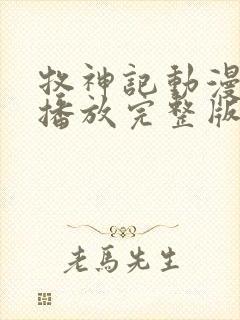 牧神記動漫
播放完整版
老馬先生